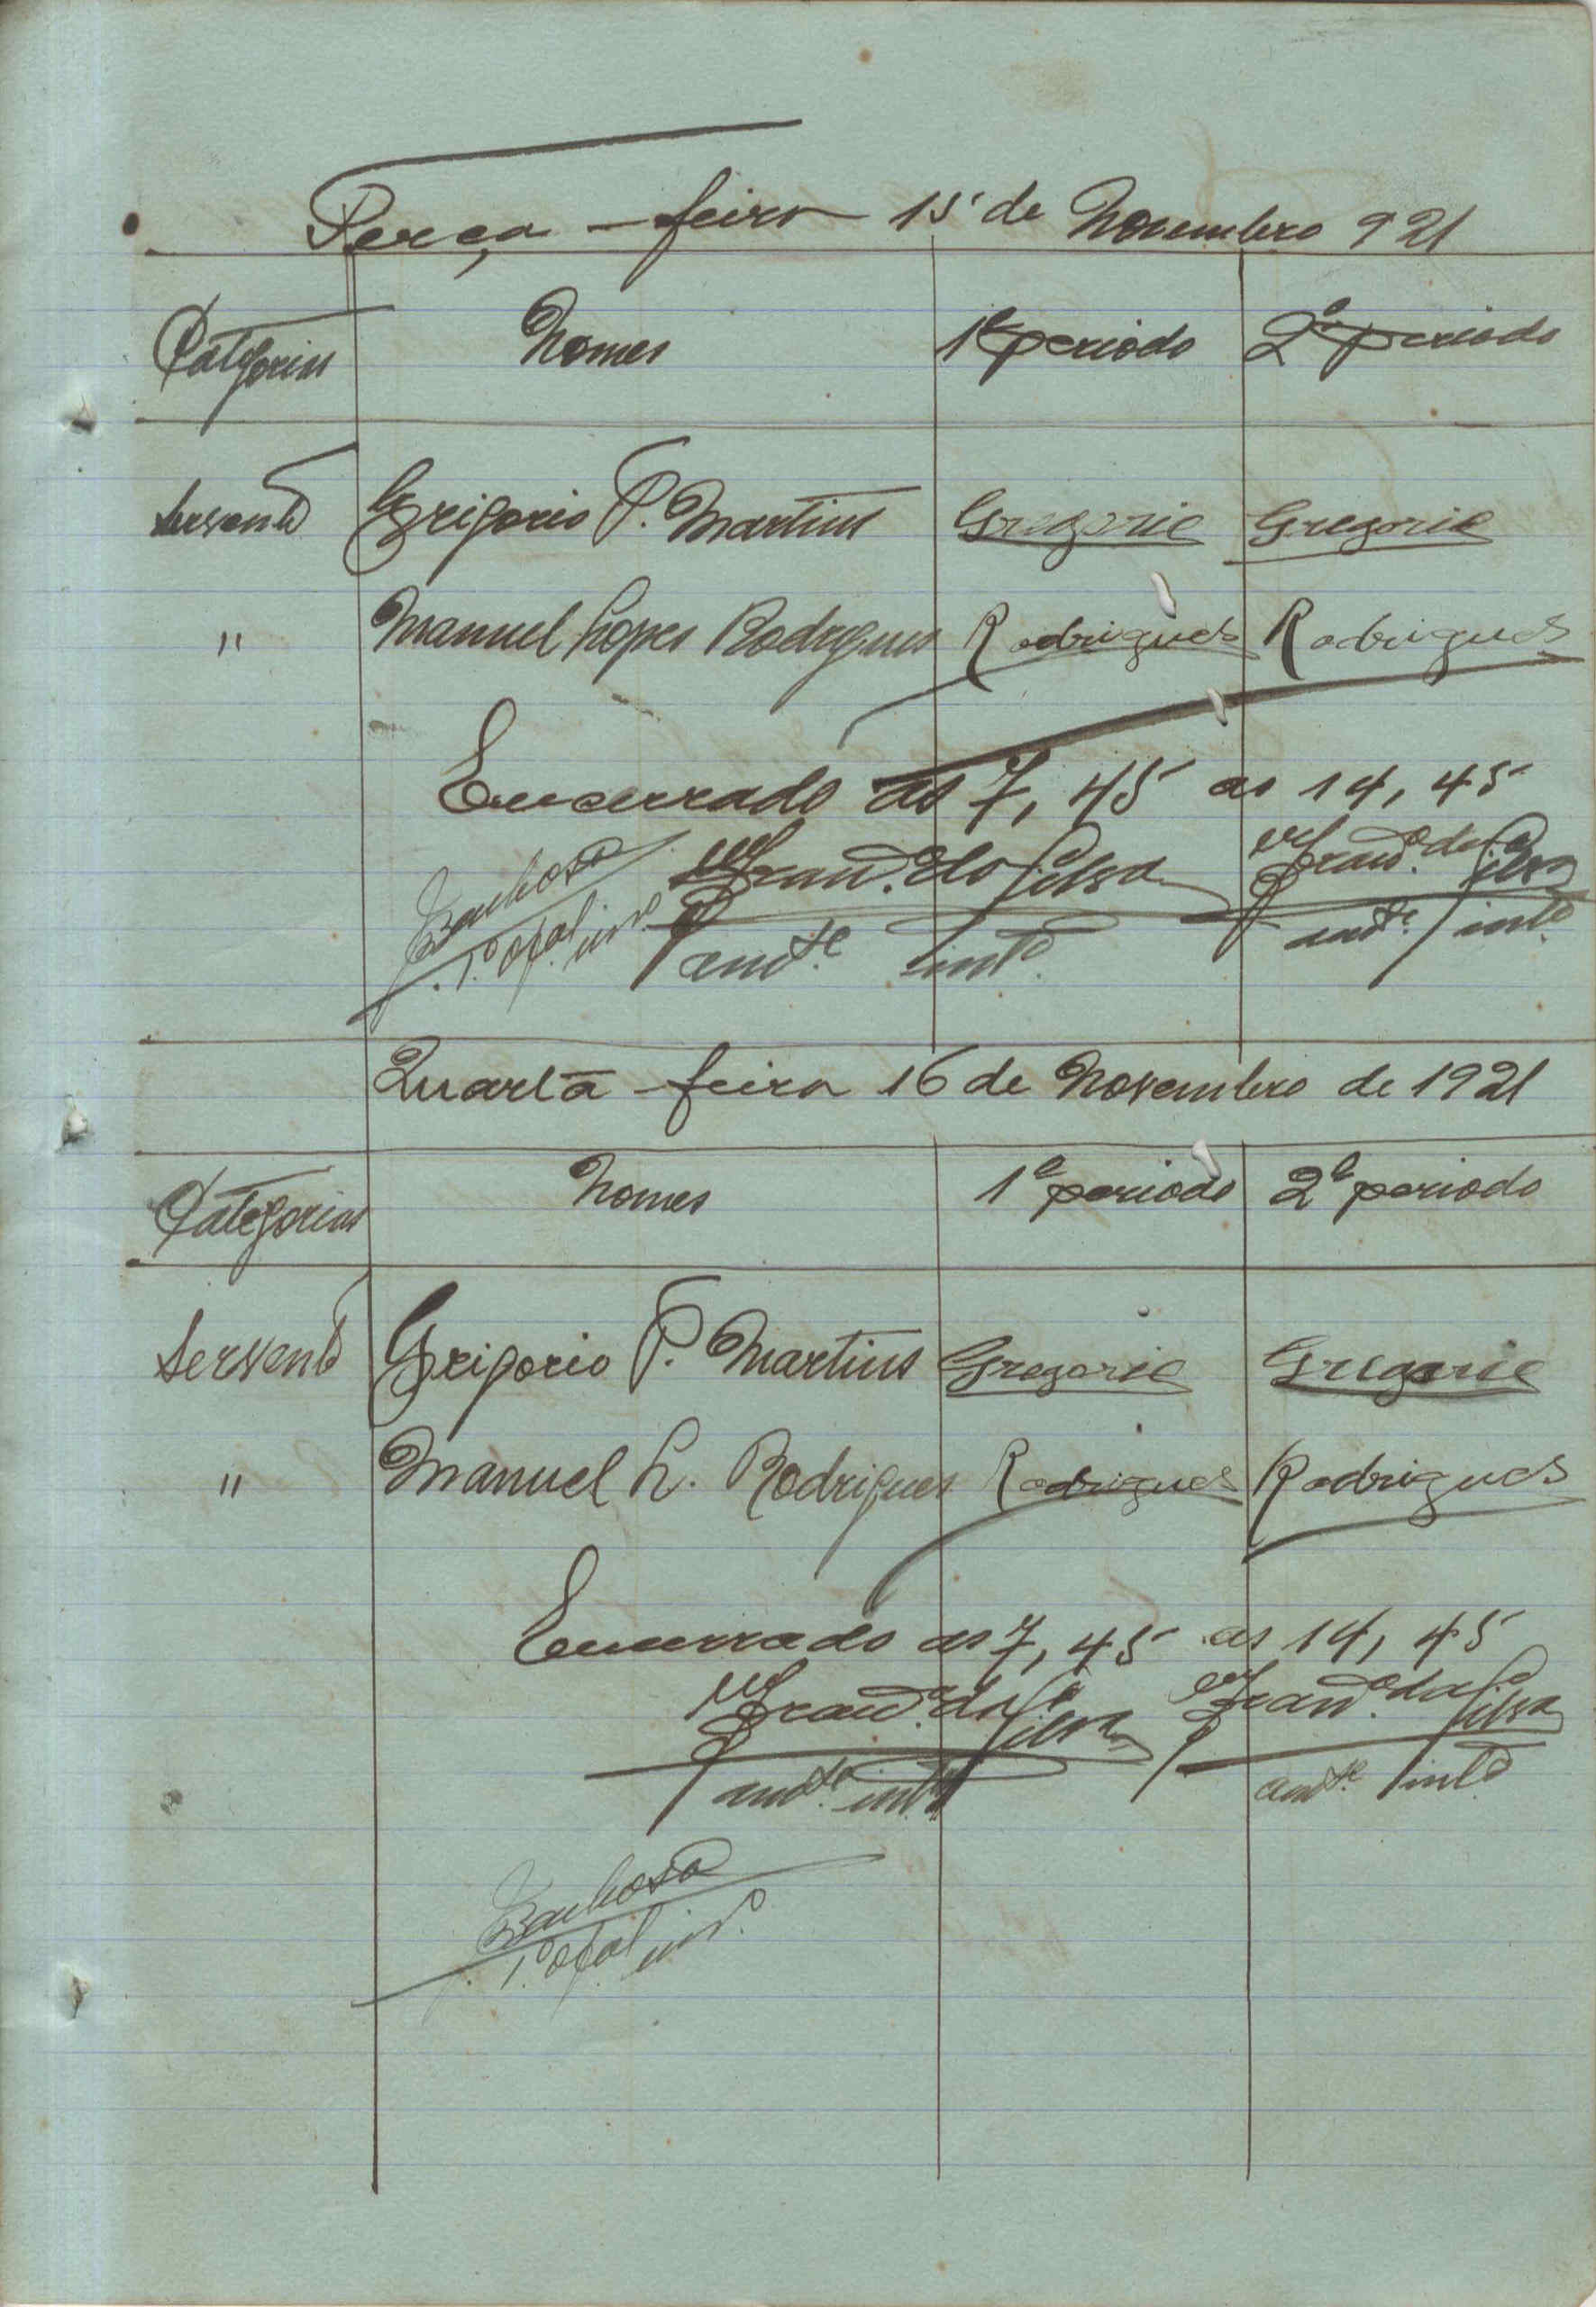 Terça-feira 15 de Novembro 921
Categorias Nomes 1º periodo 2º periodo
Servente Grigorio P. Martins Gregorio Gregorio
" Manuel Lopes Rodrigues Rodrigues Rodrigues
Encerrado as 7,45 as 14,45
Barbosa da Silva da Silva
1º ofal int.º
Quarta-feira 16 de Novembro de 1921
Categorias Nomes 1º periodo 2º periodo
Servente Grigorio P. Martins Gregorio Gregorio
" Manuel L. Rodrigues Rodrigues Rodrigues
Encerrado as 7,45 as 14,45
da Silva da Silva
int.º int.º
Barbosa
1º ofal int.º